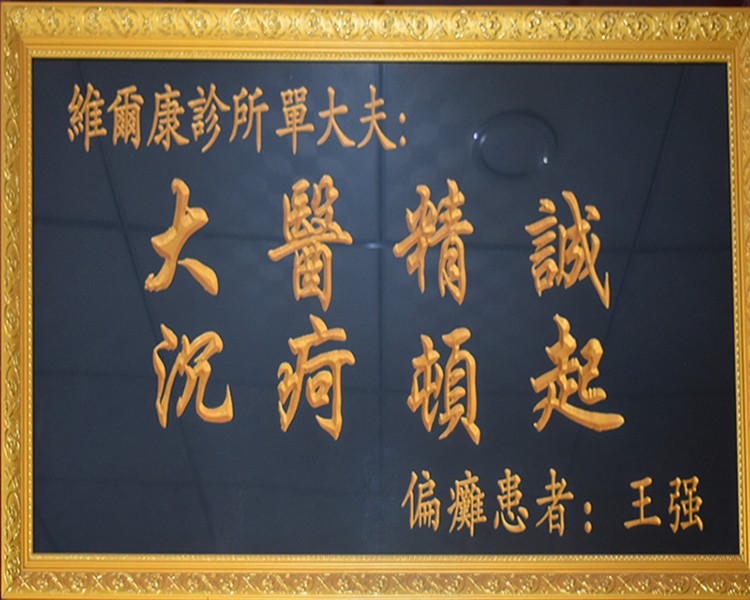 維爾康診所單大夫:
大醫精誠
沉疴頓起
偏癱患者:王强